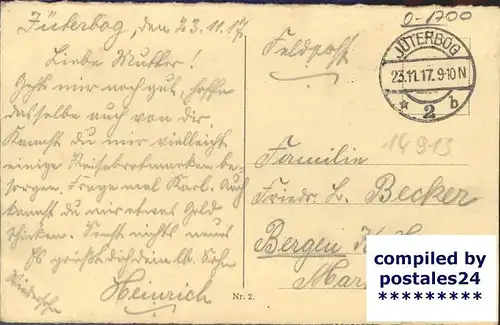 Jüterbog, den 23.11.17.
Liebe Mutter!
Geht mir noch gut, hoffe
dasselbe auch von dir.
Kannst du mir vielleicht
einige Reisebrotmarken be-
sorgen. Frage mal Karl. Auch
kannst du mir etwas Geld
schicken. Sonst nichts neues
Es grüßt dich dein lb. Sohn
Heinrich
Wiedersehn
Feldpost
0-1700
JÜTERBOG
23.11.17. 9-10 N
* 2 b
14913
Familie
Friedr. L. Becker
Bergen
Nr. 2.
compiled by
postales24
*********